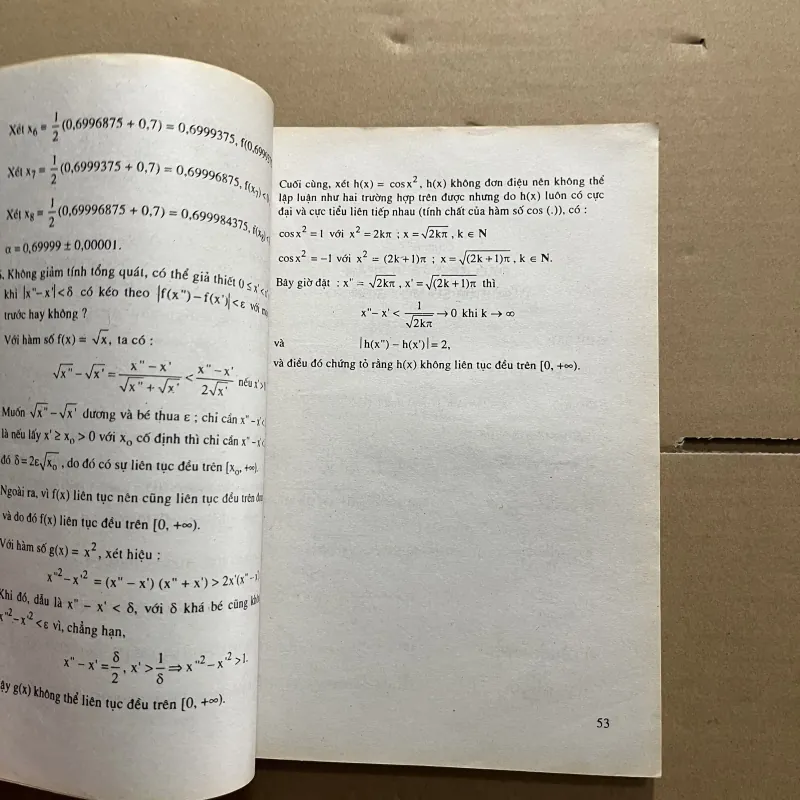 Xét x₆ = 1/2 (0,6996875 + 0,7) = 0,6999375,
Xét x₇ = 1/2 (0,6999375 + 0,7) = 0,69996875, f(x₇) <
Xét x₈ = 1/2 (0,69996875 + 0,7) = 0,699984375, f(x₈)
α = 0,69999 ± 0,00001.
Không giảm tính tổng quát, có thể giả thiết 0 ≤ x' <
khi |x"− x'| < δ có kéo theo |f(x") − f(x')| < ε với
trước hay không ?
Với hàm số f(x) = √x, ta có :
√x" − √x' = (x" − x')/(√x" + √x') < (x" − x')/(2√x') nếu x' >
Muốn √x" − √x' dương và bé thua ε ; chỉ cần x" − x' <
là nếu lấy x' ≥ x₀ > 0 với x₀ cố định thì chỉ cần x" − x' <
đó δ = 2ε√x₀ , do đó có sự liên tục đều trên [x₀, +∞).
Ngoài ra, vì f(x) liên tục nên cũng liên tục đều trên
và do đó f(x) liên tục đều trên [0, +∞).
Với hàm số g(x) = x², xét hiệu :
x"² − x'² = (x" − x') (x" + x') > 2x'(x" − x'
Khi đó, dẫu là x" − x' < δ, với δ khá bé cũng
x"² − x'² < ε vì, chẳng hạn,
x" − x' = δ/2 , x' > 1/δ ⇒ x"² − x'² > 1.
ậy g(x) không thể liên tục đều trên [0, +∞).
Cuối cùng, xét h(x) = cosx² , h(x) không đơn điệu nên không thể
lập luận như hai trường hợp trên được nhưng do h(x) luôn có cực
đại và cực tiểu liên tiếp nhau (tính chất của hàm số cos (.)), có :
cosx² = 1 với x² = 2kπ ; x = √2kπ , k ∈ N
cosx² = −1 với x² = (2k+1)π ; x = √(2k+1)π , k ∈ N.
Bây giờ đặt : x" = √2kπ , x' = √(2k+1)π thì
x"− x' < 1/√2kπ → 0 khi k → ∞
và |h(x") − h(x')| = 2,
và điều đó chứng tỏ rằng h(x) không liên tục đều trên [0, +∞).
53